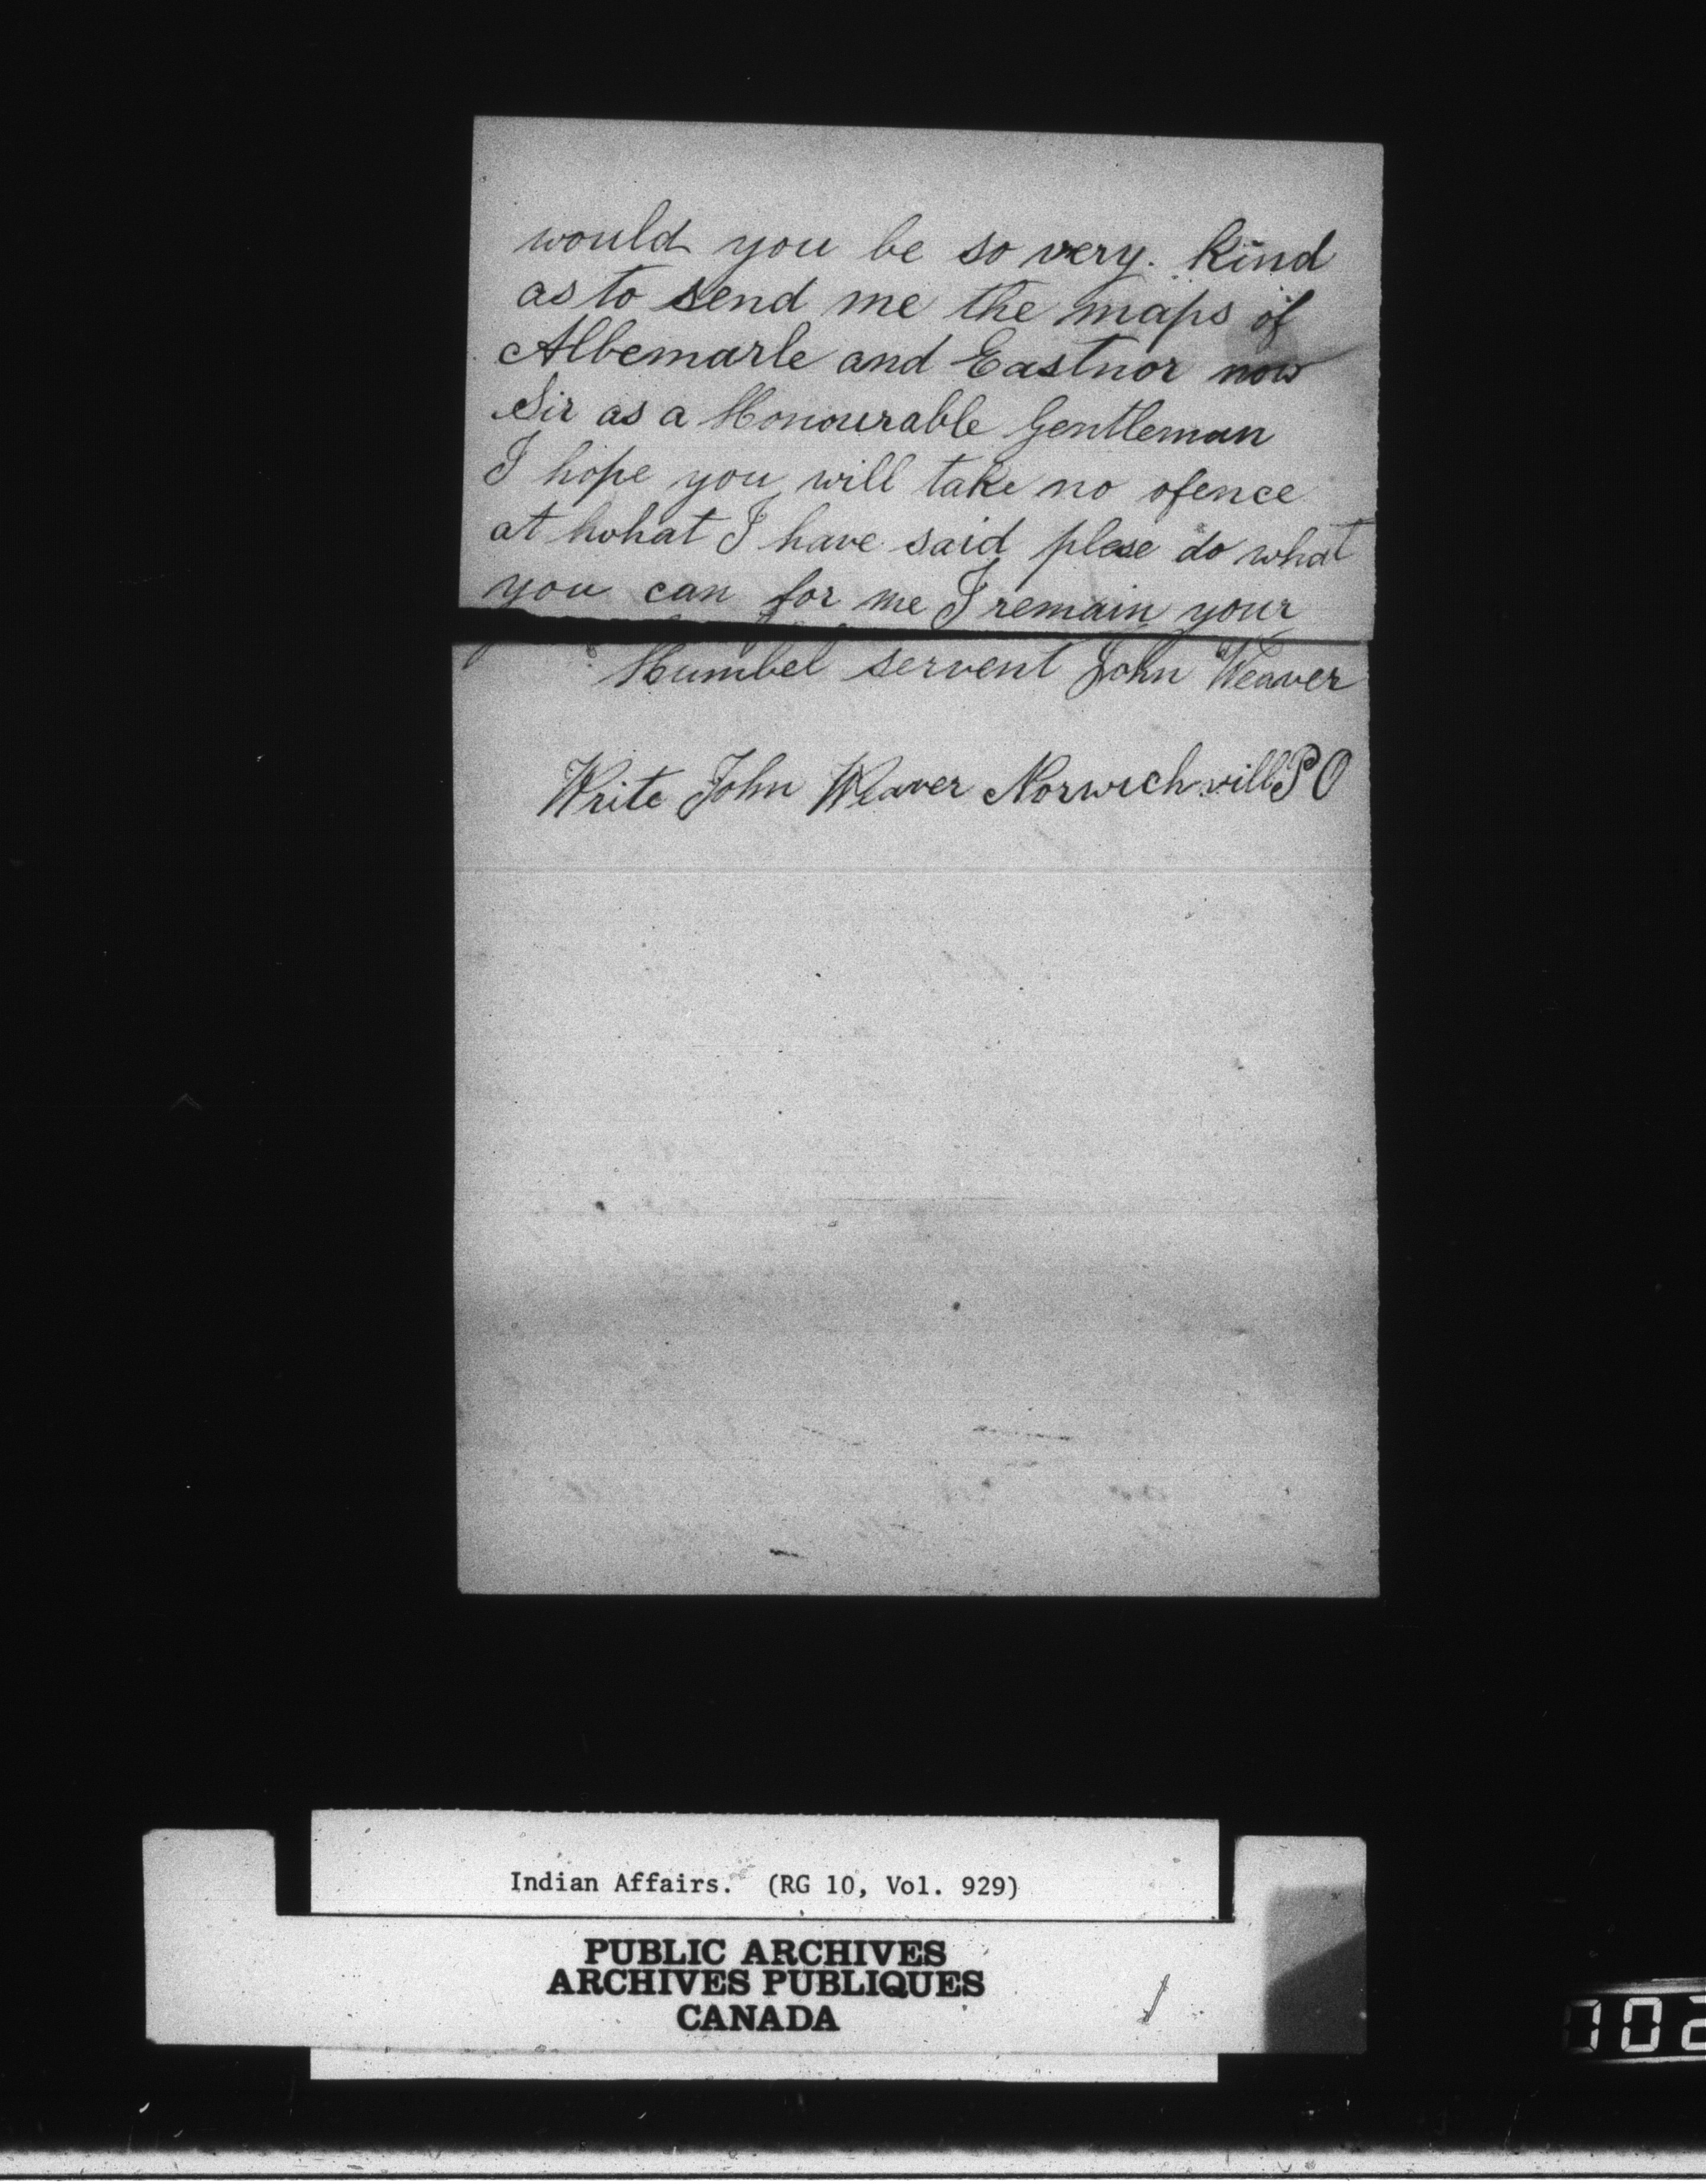 would you be so very. Kind
as to send me the maps of
Albemarle and Eastnor now
Sir as a Honourable Gentleman
I hope you will take no ofence
at hwhat I have said plese do what
you can for me I remain your
Humbel servent John Weaver
Write John Weaver Norwichvill P O
Indian Affairs. (RG 10, Vol. 929)
PUBLIC ARCHIVES
ARCHIVES PUBLIQUES
CANADA